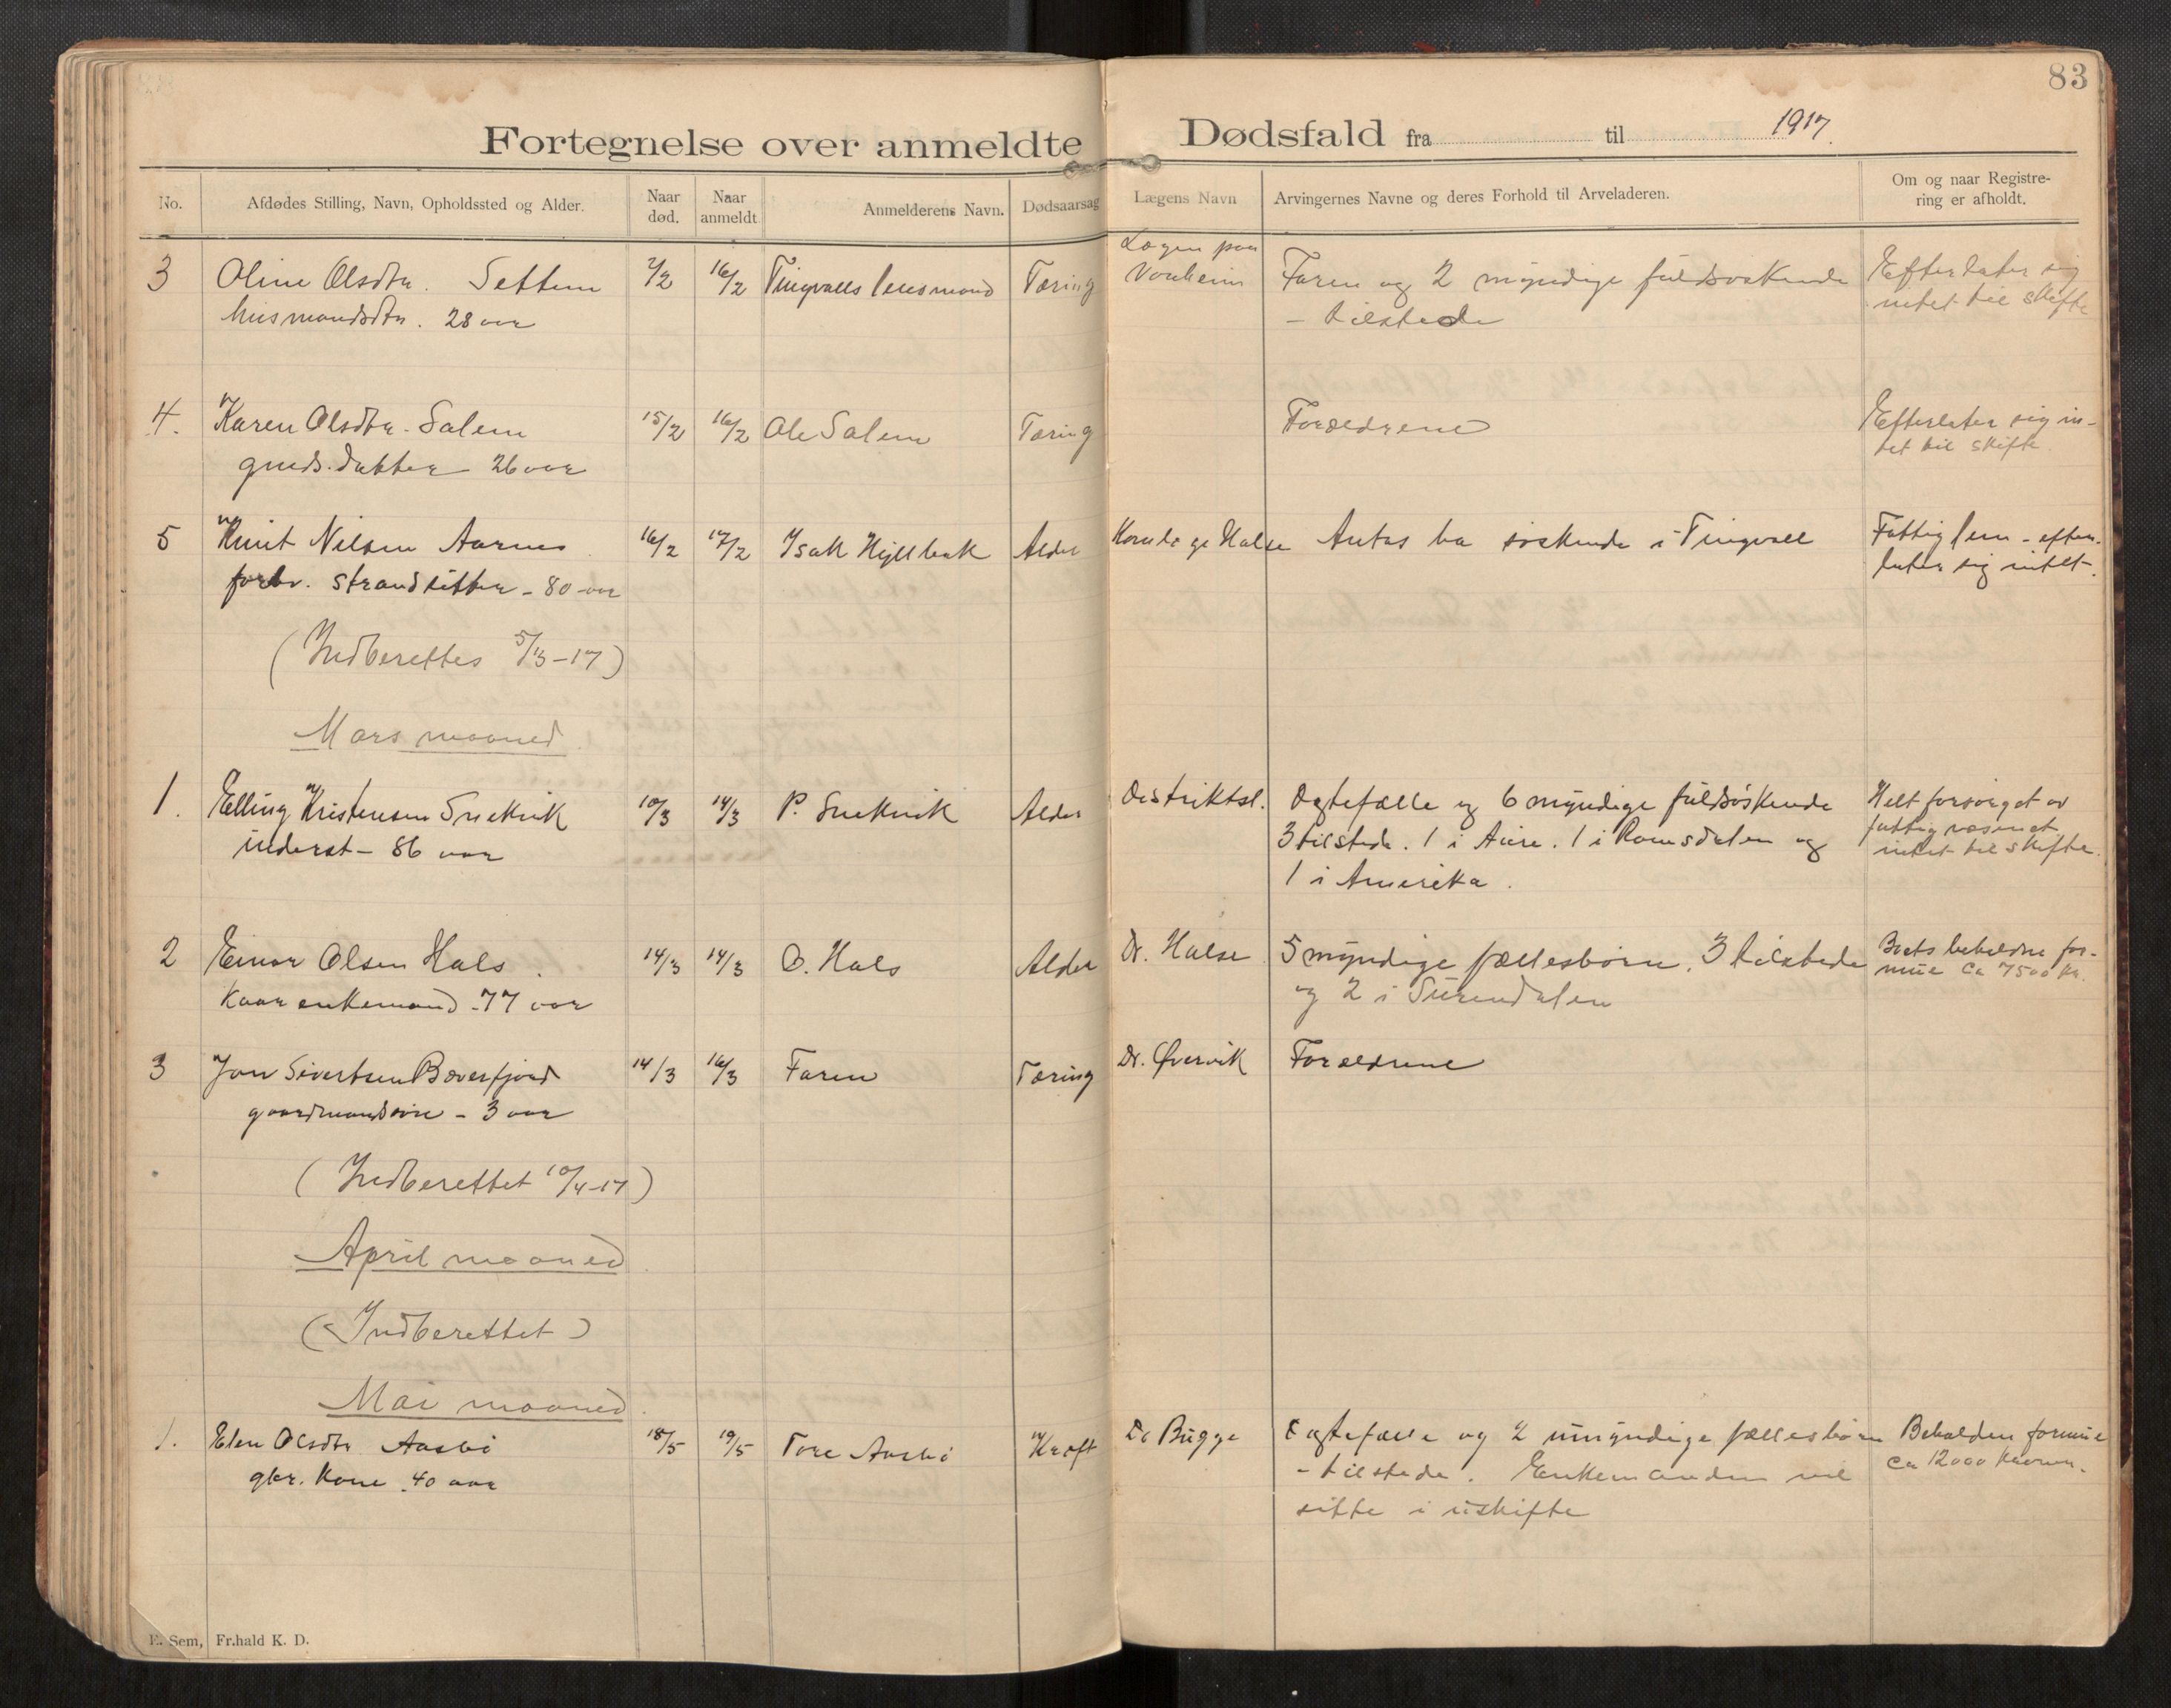 83
Fortegnelse over anmeldte Dødsfald fra til 1917.
No. Afdødes Stilling, Navn, Opholdssted og Alder. Naar død. Naar anmeldt. Anmelderens Navn. Dødsaarsag Lægens Navn Arvingernes Navne og deres Forhold til Arveladeren. Om og naar Registrering er afholdt.
Lægen paa
3 Oline Olsdtr. Settem 2/2 16/2 Tingvolls lensmand Tæring Vonheim Faren og 2 myndige fuldsøskende Efterlater sig
husmandsdtr. 28 aar - tilstede intet til skifte
4. Karen Olsdtr. Salem 15/2 16/2 Ole Salem Tæring Forældrene Efterlater sig in-
gmds. datter 26 aar tet til skifte.
5 Knut Nilsen Aarnes 16/2 17/2 Isak Hjellbak Alder Halse Antas ha søskende i Tingvoll Fattiglem - efter-
forhv. strandsitter - 80 aar later sig intet.
(Indberettes 5/3-17)
Mars maaned
1. Elling Kristensen Snekvik 10/3 14/3 P. Snekvik Alder Distriktsl. Egtefælle og 6 myndige fuldsøskende Helt forsørget av
inderst - 86 aar 3 tilstede. 1 i Aure. 1 i Romsdalen og fattigvæsenet
1 i Amerika. intet til skifte.
2 Einar Olsen Hals. 14/3 14/3 O. Hals Alder Dr. Halse 5 myndige fællesbørn. 3 tilstede Boets beholdne for-
Kaarenkemand - 77 aar og 2 i Surendalen mue ca 7500 kr.
3 Jon Sivertsen Bæverfjord 14/3 16/3 Faren Tæring Dr. Øvervik Forældrene
gaardmandssøn - 3 aar
(Indberettet 10/4-17)
April maaned.
(Indberettet)
Mai maaned.
1. Elen Olsdtr Aasbø 18/5 19/5 Tore Aasbø Kræft Dr Bugge Egtefælle og 2 umyndige fællesbørn Beholden formue
gbr. kone 40 aar - tilstede. Enkemanden vil ca 12000 kroner.
sitte i uskifte
E. Sem, Fr.hald K. D.